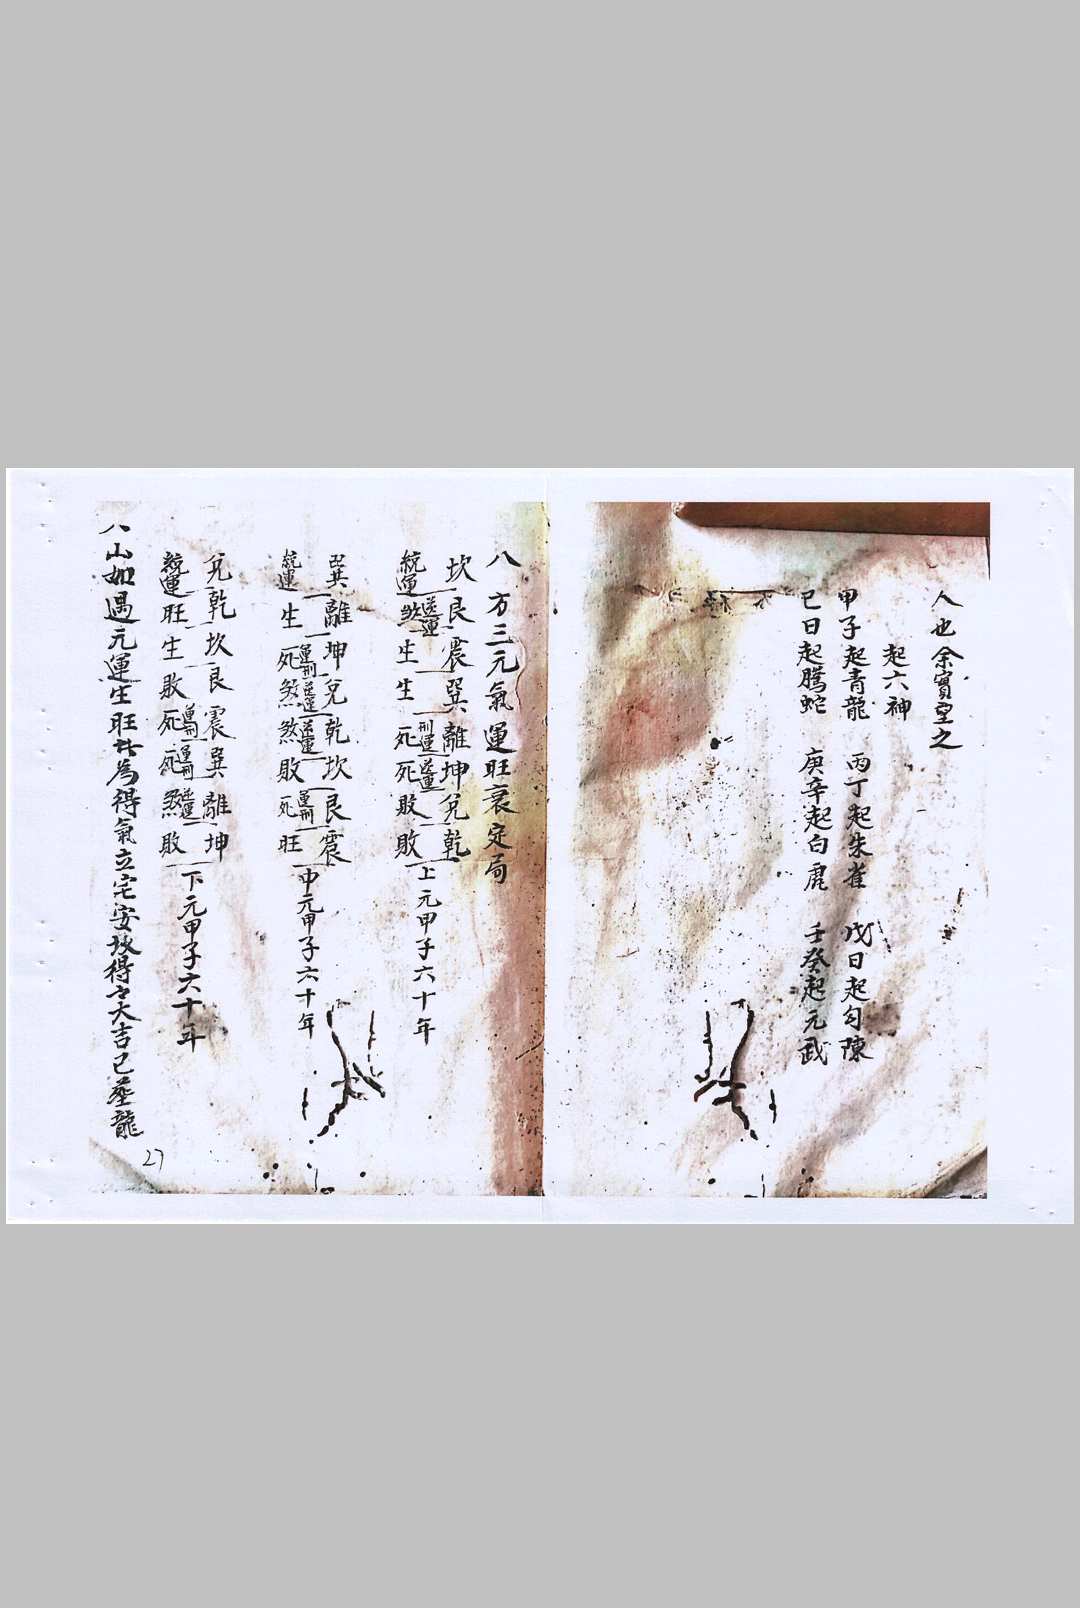 人也余實望之
起六神
甲子起青龍 丙丁起朱雀 戊日起勾陳
己日起騰蛇 庚辛起白虎 壬癸起元武
八方三元氣運旺衰定局
坎艮震巽離坤兌乾
送運 刑運 送運
統運煞生生死死敗敗
上元甲子六十年
巽離坤兌乾坎艮震
運刑 送運 送運 運刑
統運生死煞煞敗死旺
中元甲子六十年
兌乾坎艮震巽離坤
運刑 運刑 送運
統運旺生敗死死煞敗
下元甲子六十年
八山如遇元運生旺為得氣立宅安坟得之大吉已塟龍
27